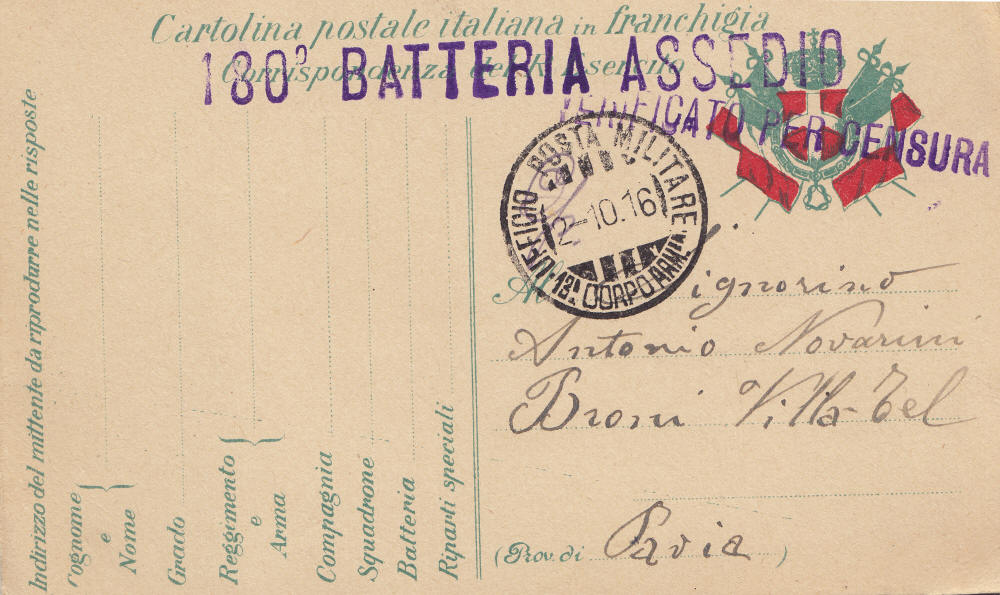 Cartolina postale italiana in franchigia
Corrispondenza del R. Esercito
180ª BATTERIA ASSEDIO
VERIFICATO PER CENSURA
UFFICIO POSTA MILITARE
2-10.16
13º CORPO ARMATA
Al Signorino
Antonio Novarini
Broni Villa-Tel
(Prov. di Pavia)
Indirizzo del mittente da riprodurre nelle risposte
Cognome
e
Nome
Grado
Reggimento
e
Arma
Compagnia
Squadrone
Batteria
Riparti speciali